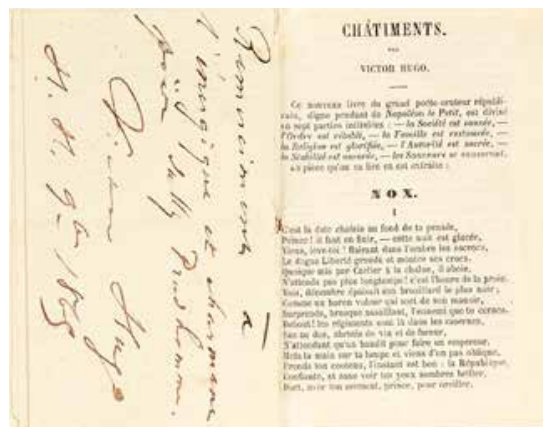 Remerciement à
l'énergique et charmant
poète Sully Prudhomme.
Victor Hugo
H. H. 9bre 1865
CHÂTIMENTS.
PAR
VICTOR HUGO.
Ce nouveau livre du grand poète-orateur républi-
cain, digne pendant de Napoléon le Petit, est divisé
en sept parties intitulées : — la Société est sauvée, —
l'Ordre est rétabli, — la Famille est restaurée, —
la Religion est glorifiée, — l'Autorité est sacrée, —
la Stabilité est assurée, — les Sauveurs se sauveront.
La pièce qu'on va lire en est extraite :
NOX.
I
C'est la date choisie au fond de ta pensée,
Prince! il faut en finir, — cette nuit est glacée,
Viens, lève-toi! flairant dans l'ombre les escrocs,
Le dogue Liberté gronde et montre ses crocs.
Quoique mis par Carlier à la chaîne, il aboie.
N'attends pas plus longtemps! c'est l'heure de la proie.
Vois, décembre épaissit son brouillard le plus noir;
Comme un baron voleur qui sort de son manoir,
Surprends, brusque assaillant, l'ennemi que tu cernes.
Debout! les régiments sont là dans les casernes,
Sac au dos, abrutis de vin et de fureur,
N'attendant qu'un bandit pour faire un empereur.
Mets ta main sur ta lampe et viens d'un pas oblique,
Prends ton couteau, l'instant est bon : la République,
Confiante, et sans voir tes yeux sombres briller,
Dort, avec ton serment, prince, pour oreiller.